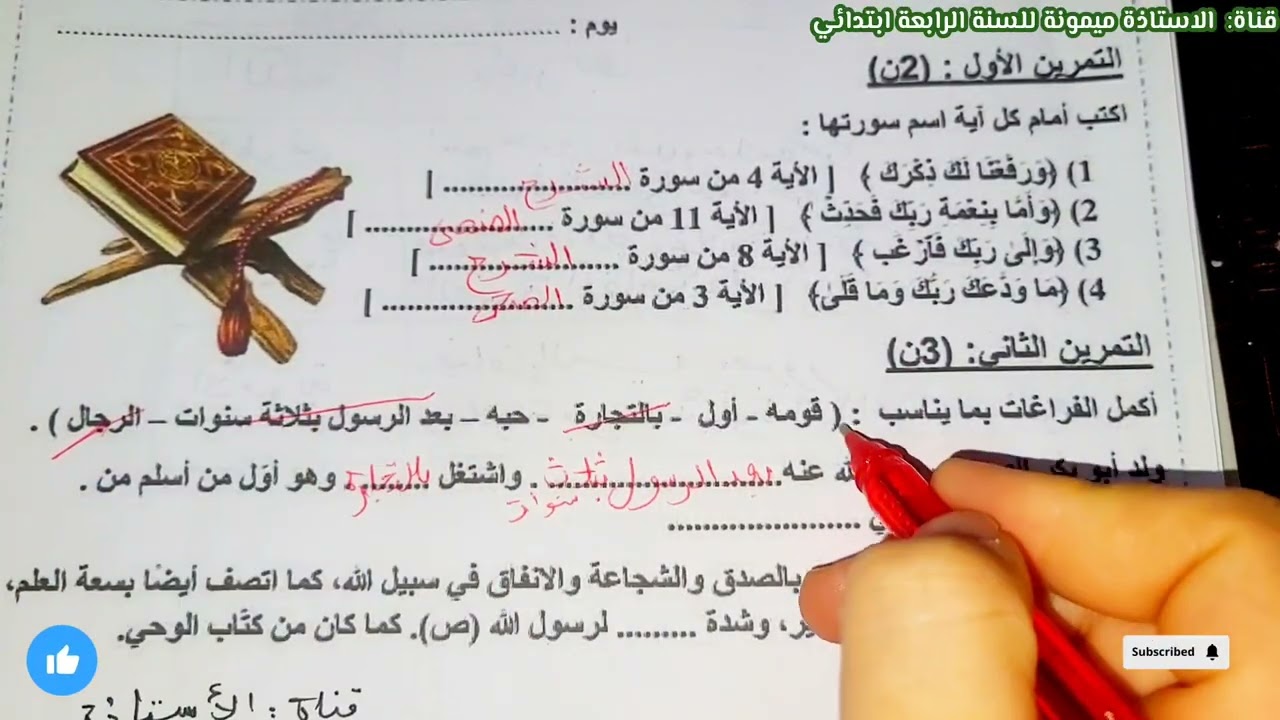 قناة: الاستاذة ميمونة للسنة الرابعة ابتدائي
يوم : ......................
التمرين الأول : (2ن)
اكتب أمام كل آية اسم سورتها :
1) ﴿وَرَفَعْنَا لَكَ ذِكْرَكَ ﴾ [ الأية 4 من سورة الشرح ]
2) ﴿وَأَمَّا بِنِعْمَةِ رَبِّكَ فَحَدِّثْ ﴾ [ الأية 11 من سورة الضحى ]
3) ﴿وَإِلَىٰ رَبِّكَ فَٱرْغَب ﴾ [ الأية 8 من سورة الشرح ]
4) ﴿مَا وَدَّعَكَ رَبُّكَ وَمَا قَلَىٰ﴾ [ الأية 3 من سورة الضحى ]
التمرين الثاني: (3ن)
أكمل الفراغات بما يناسب : ( قومه - أول - بالتجارة - حبه – بعد الرسول بثلاثة سنوات – الرجال ) .
ولد أبو بكر عنه بعد الرسول بثلاث سنوات . واشتغل بالتجارة وهو أوّل من أسلم من .
....................
بالصدق والشجاعة والانفاق في سبيل الله، كما اتصف أيضًا بسعة العلم،
وشدة ......... لرسول الله (ص). كما كان من كتّاب الوحي.
Subscribed
قناة : الأستاذة